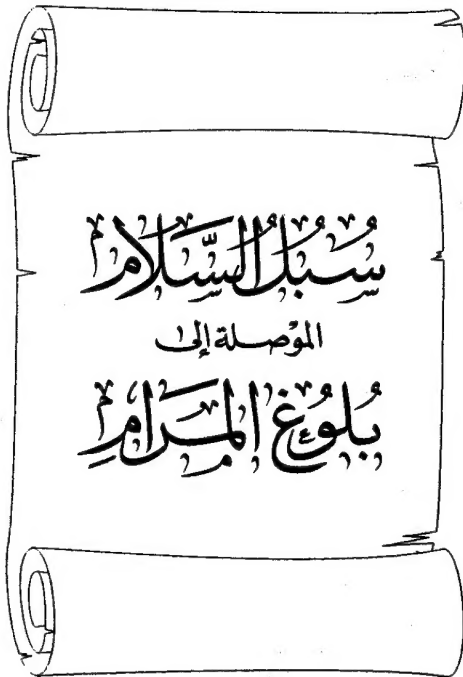 سُبُلُ السَّلَامِ
الموْصلة إلى
بُلُوُغ المَرَامِ